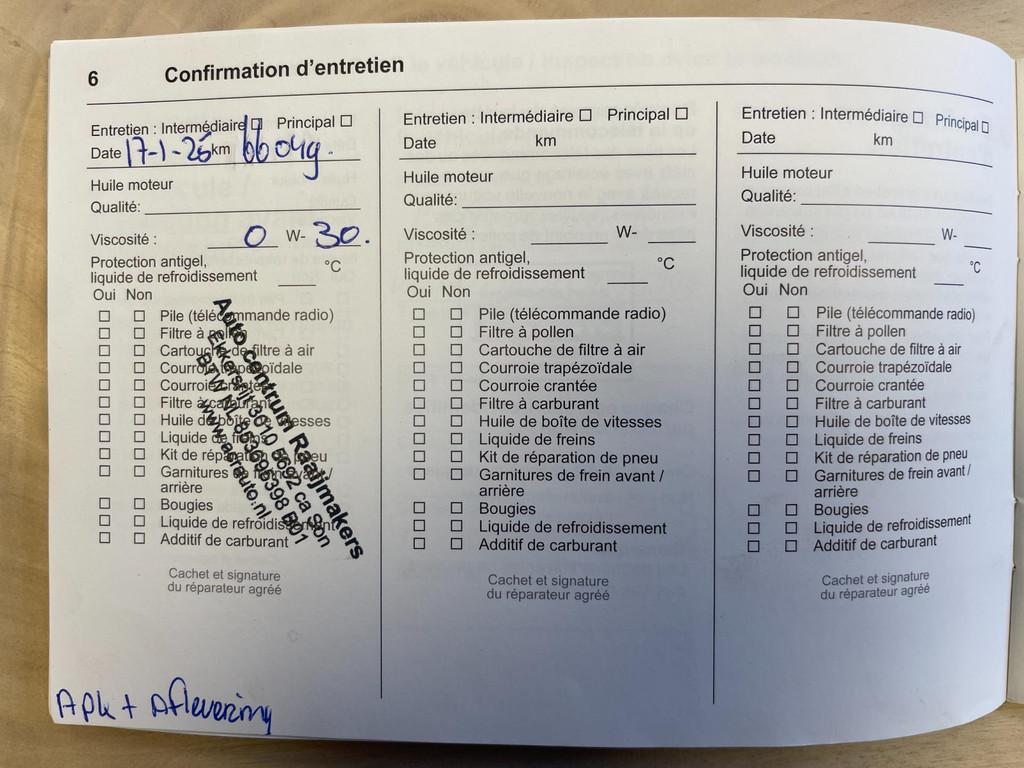 6 Confirmation d'entretien
Entretien : Intermédiaire ☐ Principal ☐
Date 17-1-25 km 166049.
Huile moteur
Qualité:
Viscosité : 0 W- 30.
Protection antigel,
liquide de refroidissement °C
Oui Non
Pile (télécommande radio)
Filtre à pollen
Cartouche de filtre à air
Courroie trapézoïdale
Courroie crantée
Filtre à carburant
Huile de boîte de vitesses
Liquide de freins
Kit de réparation de pneu
Garnitures de frein avant /
arrière
Bougies
Liquide de refroidissement
Additif de carburant
Auto centrum Raaijmakers
Ekkersrijt 3010 5692 ca Son
www.aprauto.nl
Cachet et signature
du réparateur agréé
Apk + Aflevering
Entretien : Intermédiaire ☐ Principal ☐
Date km
Huile moteur
Qualité:
Viscosité : W-
Protection antigel,
liquide de refroidissement °C
Oui Non
Pile (télécommande radio)
Filtre à pollen
Cartouche de filtre à air
Courroie trapézoïdale
Courroie crantée
Filtre à carburant
Huile de boîte de vitesses
Liquide de freins
Kit de réparation de pneu
Garnitures de frein avant /
arrière
Bougies
Liquide de refroidissement
Additif de carburant
Cachet et signature
du réparateur agréé
Entretien : Intermédiaire ☐ Principal ☐
Date km
Huile moteur
Qualité:
Viscosité : W-
Protection antigel,
liquide de refroidissement °C
Oui Non
Pile (télécommande radio)
Filtre à pollen
Cartouche de filtre à air
Courroie trapézoïdale
Courroie crantée
Filtre à carburant
Huile de boîte de vitesses
Liquide de freins
Kit de réparation de pneu
Garnitures de frein avant /
arrière
Bougies
Liquide de refroidissement
Additif de carburant
Cachet et signature
du réparateur agréé